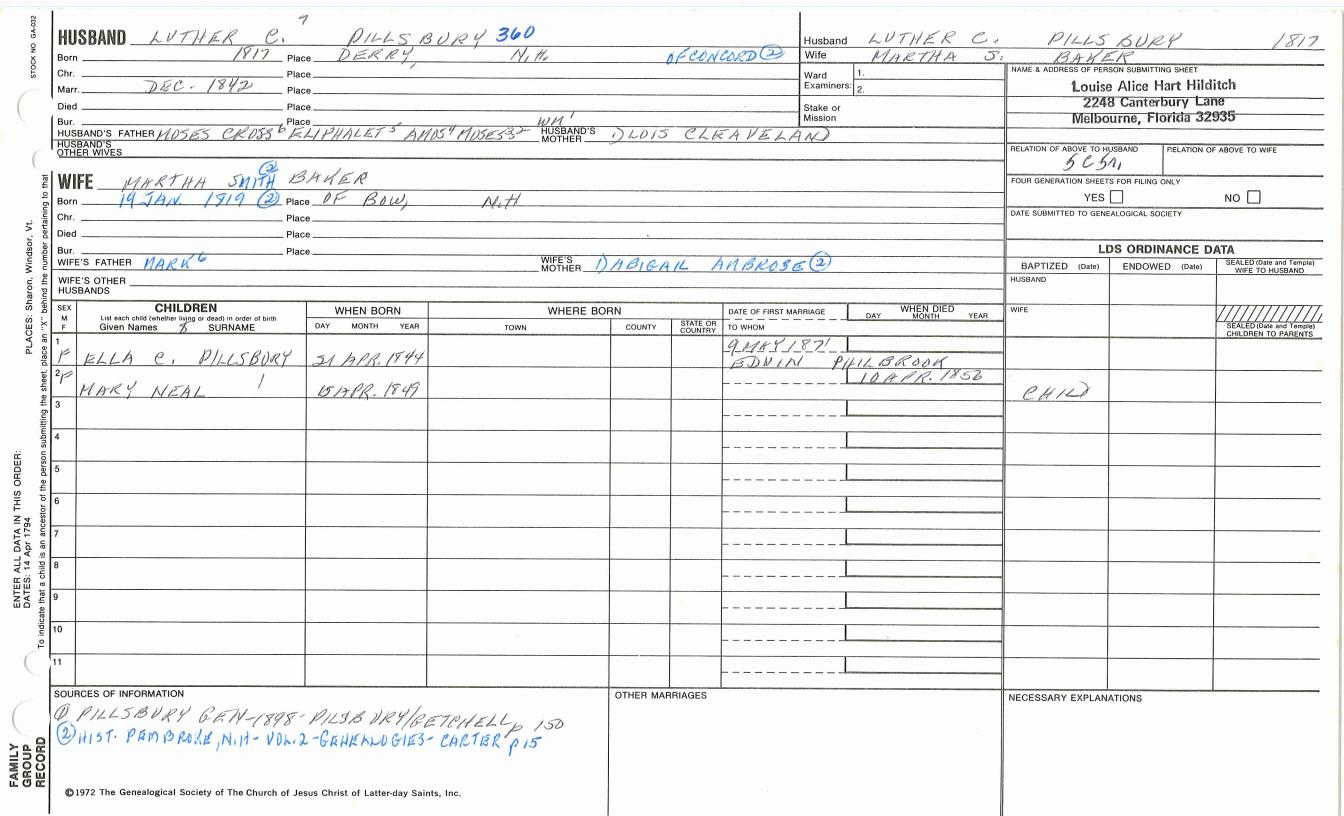 STOCK NO. GA-032
7
HUSBAND LUTHER C. PILLSBURY 360
Born 1817 Place DERRY, N.H. OF CONCORD (2)
Chr. Place
Marr. DEC. 1842 Place
Died Place
Bur. Place WM'
HUSBAND'S FATHER MOSES CROSS6 ELIPHALET5 AMOS4 MOSES3,2 HUSBAND'S MOTHER LOIS CLEAVELAND
HUSBAND'S OTHER WIVES
Husband LUTHER C. PILLSBURY 1817
Wife MARTHA S. BAKER
Ward Examiners: 1. 2.
Stake or Mission
NAME & ADDRESS OF PERSON SUBMITTING SHEET
Louise Alice Hart Hilditch
2248 Canterbury Lane
Melbourne, Florida 32935
RELATION OF ABOVE TO HUSBAND RELATION OF ABOVE TO WIFE
FOUR GENERATION SHEETS FOR FILING ONLY
YES NO
DATE SUBMITTED TO GENEALOGICAL SOCIETY
(2)
WIFE MARTHA SMITH BAKER
Born 19 JAN 1819 (2) Place OF BOW, N.H
Chr. Place
Died Place
Bur. Place
WIFE'S FATHER MARK6 WIFE'S MOTHER ABIGAIL AMBROSE (2)
WIFE'S OTHER HUSBANDS
LDS ORDINANCE DATA
BAPTIZED (Date) ENDOWED (Date) SEALED (Date and Temple) WIFE TO HUSBAND
HUSBAND
WIFE
SEALED (Date and Temple) CHILDREN TO PARENTS
SEX M F
CHILDREN
List each child (whether living or dead) in order of birth
Given Names 8 SURNAME
WHEN BORN
DAY MONTH YEAR
WHERE BORN
TOWN COUNTY STATE OR COUNTRY
DATE OF FIRST MARRIAGE
TO WHOM
WHEN DIED
DAY MONTH YEAR
1 9 MAY 1871
F ELLA C. PILLSBURY 21 APR. 1844 EDWIN PHILBROOK
2 F 10 APR. 1856
MARY NEAL 15 APR. 1849 CHILD
3
4
5
6
7
8
9
10
11
SOURCES OF INFORMATION
(1) PILLSBURY GEN-1898- PILSBURY/GETCHELL p 150
(2) HIST. PEMBROKE, N.H- VOL. 2 - GENEALOGIES- CARTER p 15
OTHER MARRIAGES
NECESSARY EXPLANATIONS
©1972 The Genealogical Society of The Church of Jesus Christ of Latter-day Saints, Inc.
FAMILY GROUP RECORD
ENTER ALL DATA IN THIS ORDER:
DATES: 14 Apr 1794
PLACES: Sharon, Windsor, Vt.
To indicate that a child is an ancestor of the person submitting the sheet, place an "X" behind the number pertaining to that